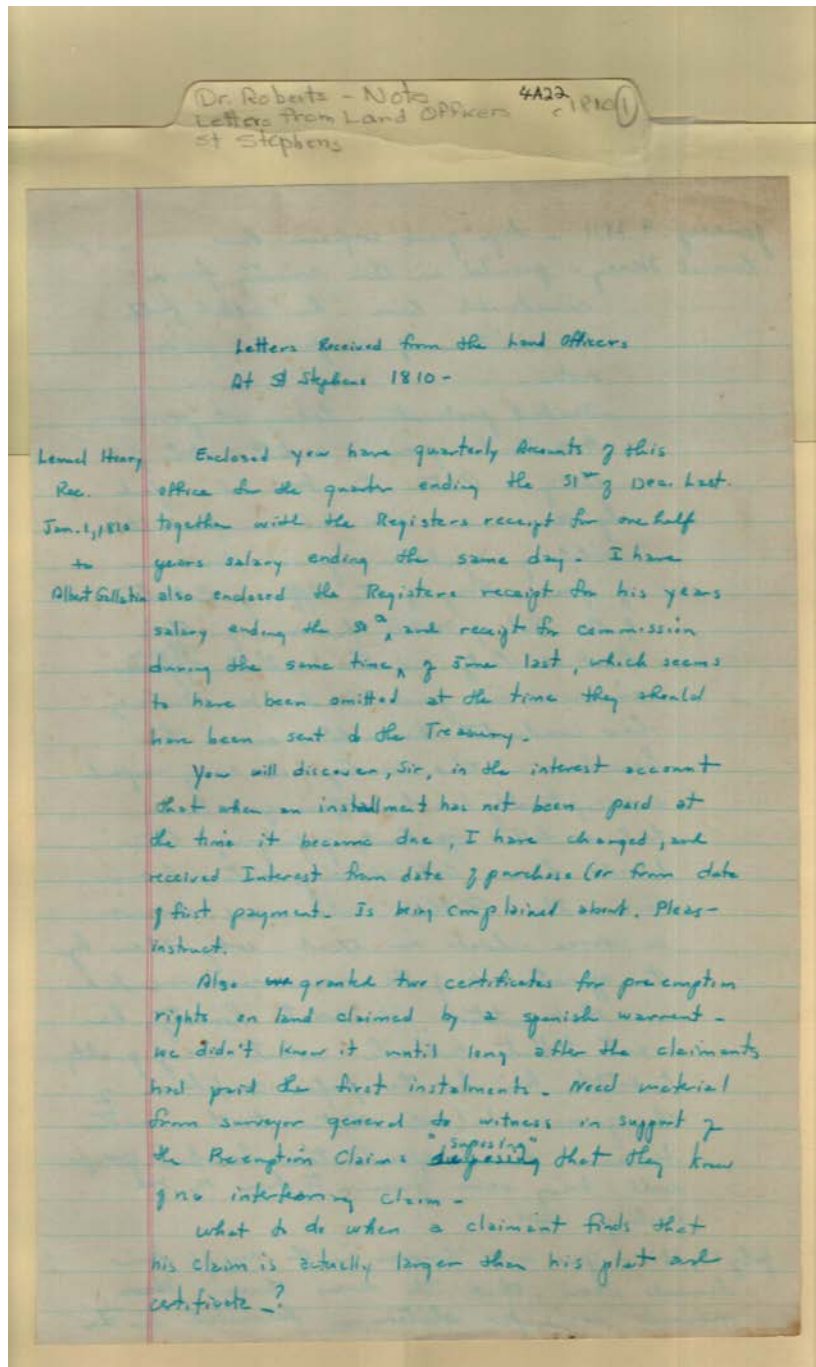 Dr. Roberts - Note 4A22
Letters from Land Officers c 1810 (1)
St Stephens
Letters Received from the Land Officers
At St Stephens 1810-
Lemuel Henry
Rec.
Jan. 1, 1810
to
Albert Gallatin
Enclosed you have quarterly Accounts of this
office for the quarter ending the 31st of Dec. Last.
together with the Registers receipt for one half
years salary ending the same day. I have
also enclosed the Registers receipt for his years
salary ending the and receipt for commission
during the same time, of June last, which seems
to have been omitted at the time they should
have been sent to the Treasury.
You will discover, Sir, in the interest account
that when an installment has not been paid at
the time it became due, I have charged, and
received Interest from date of purchase (or from date
of first payment. Is being complained about. Pleas-
instruct.
Also granted two certificates for preemption
rights on land claimed by a spanish warrent -
we didn't know it until long after the claiments
had paid the first instalments. Need material
from surveyor general to witness in support of
the Preemption Claims "suposing" that they know
of no interfearing claim -
What to do when a claimant finds that
his claim is actually larger than his plat and
certificate -?